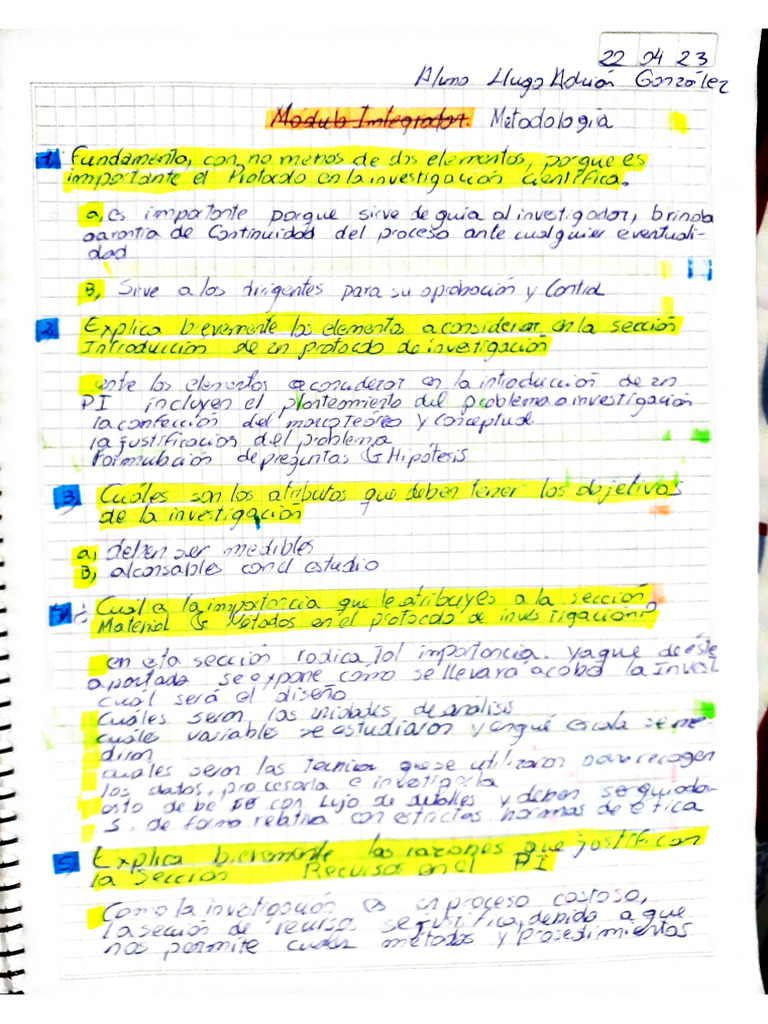 22 04 23
Alumo Hugo Adrián González
Módulo Integrador. Metodologia
1. Fundamento, con no menos de dos elementos, porque es
importante el Protocolo en la investigación Científica.
a, es importante porque sirve de guia al investigador, brinda
garantia de Continuidad del proceso ante cualquier eventuali-
dad
B, Sirve a los dirigentes para su aprobación y Control
2. Explica brevemente los elementos a considerar en la sección
Introducción de un protocolo de investigación
ente los elementos a considerar en la introducción de un
PI incluyen el planteamiento del problema a investigación
la confección del marco teóreo y conceptual
la justificación del problema
Formulación de preguntas G Hipótesis
3. Cuáles son los atributos que deben tener los objetivos
de la investigación
a, deben ser medibles
B, alconsables con el estudio
4. ¿Cual es la importancia que le atribuyes a la sección
Material G Métodos en el protocolo de investigación?
en esta sección radica tal importancia. ya que de éste
apartado se expone como se llevara acobol la Invest
cuál será el diseño
cuáles seron las unidades de análisis
cuáles variables se estudiaron y enqué escala se me-
diron
cuales seron las Tecnica que se utilizaron para recoger
los datos, procesarla e investigarla
esto debe con Lujo de detalles y deben se guiado-
s. de forma relativa con estrictas normas de etica
5, Explica brevemente las razones que justifican
la Sección Recursos en el PI
Como la investigación es un proceso costoso,
la sección de recursos se justifica, debido a que
nos permite cuales métodos y procedimientos